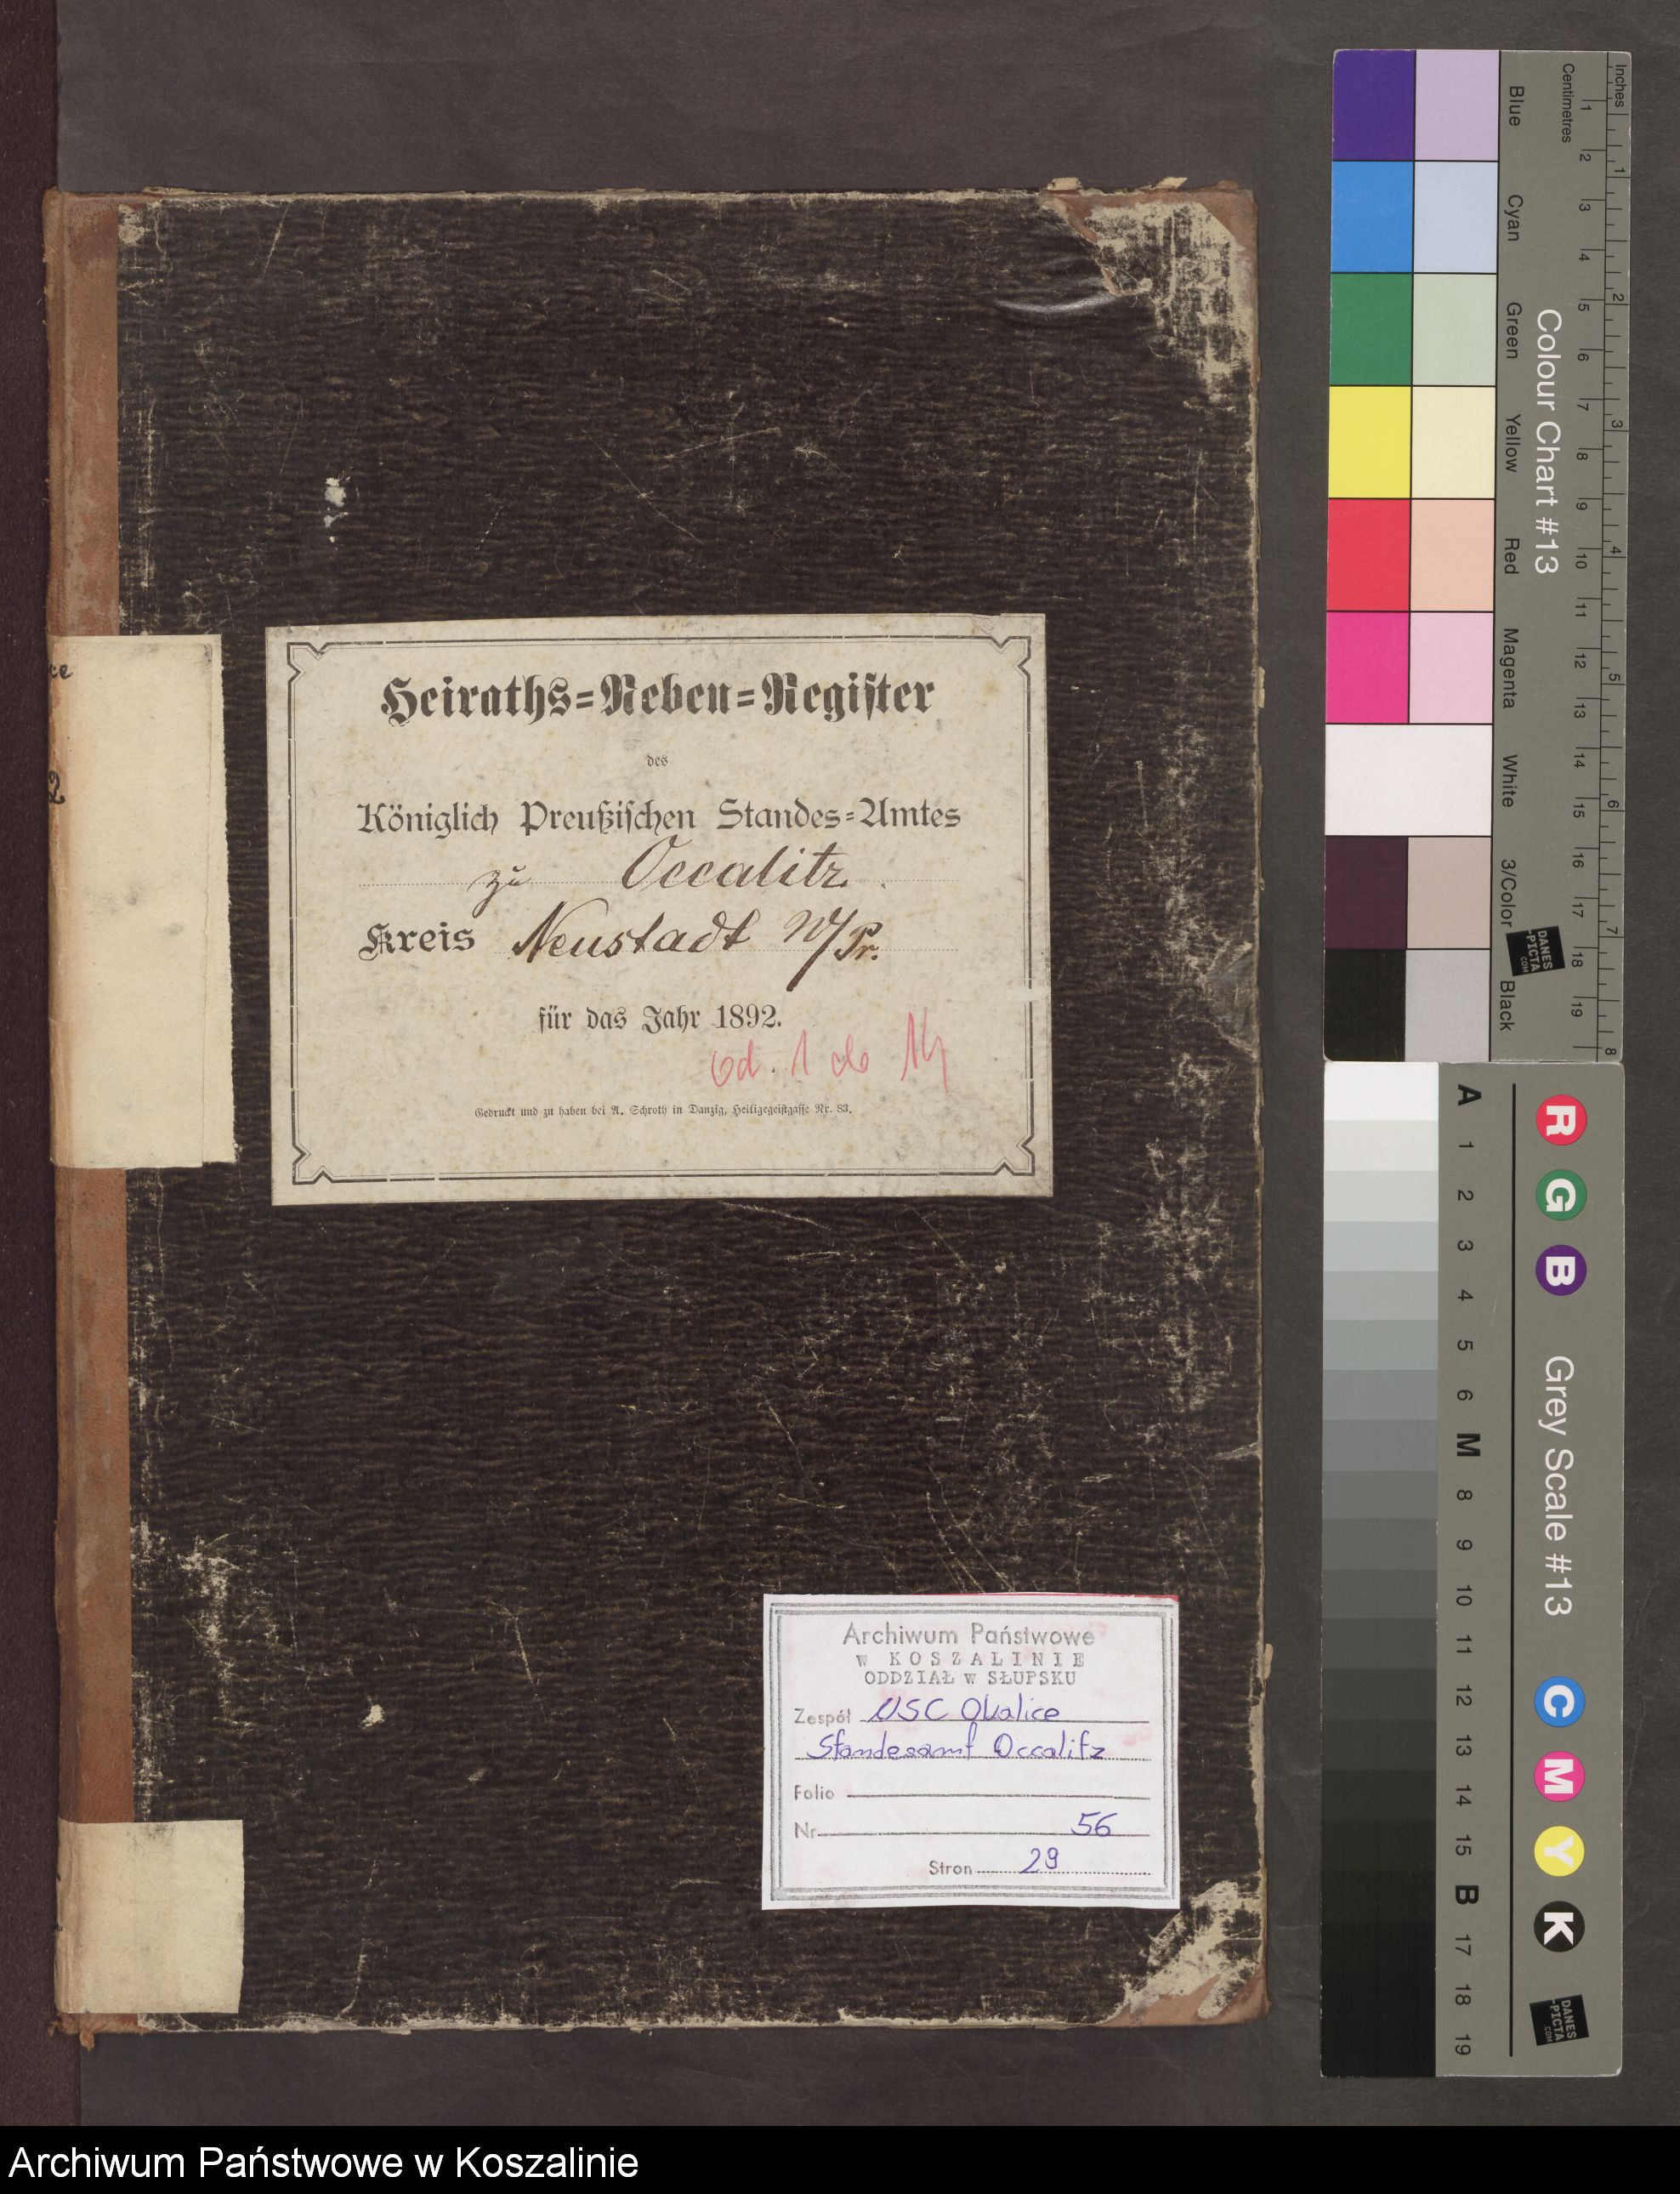 Heiraths=Neben=Register
des
Königlich Preußischen Standes=Amtes
zu Occalitz.
Kreis Neustadt W/Pr.
für das Jahr 1892.
od. 1 do 14
Gedruckt und zu haben bei A. Schroth in Danzig, Heiligegeistgasse Nr. 83.
ce
2
Archiwum Państwowe
w KOSZALINIE
ODDZIAŁ w SŁUPSKU
Zespół USC Okalice
Standesamt Occalitz
Folio
Nr. 56
Stron 29
Inches 1 2 3 4 5 6 7 8
Centimetres 1 2 3 4 5 6 7 8 9 10 11 12 13 14 15 16 17 18 19
Colour Chart #13
Blue Cyan Green Yellow Red Magenta White 3/Color Black
DANES
-PICTA
.COM
R G B Grey Scale #13 C M Y K
A 1 2 3 4 5 6 M 8 9 10 11 12 13 14 15 B 17 18 19
DANES
-PICTA
.COM
Archiwum Państwowe w Koszalinie